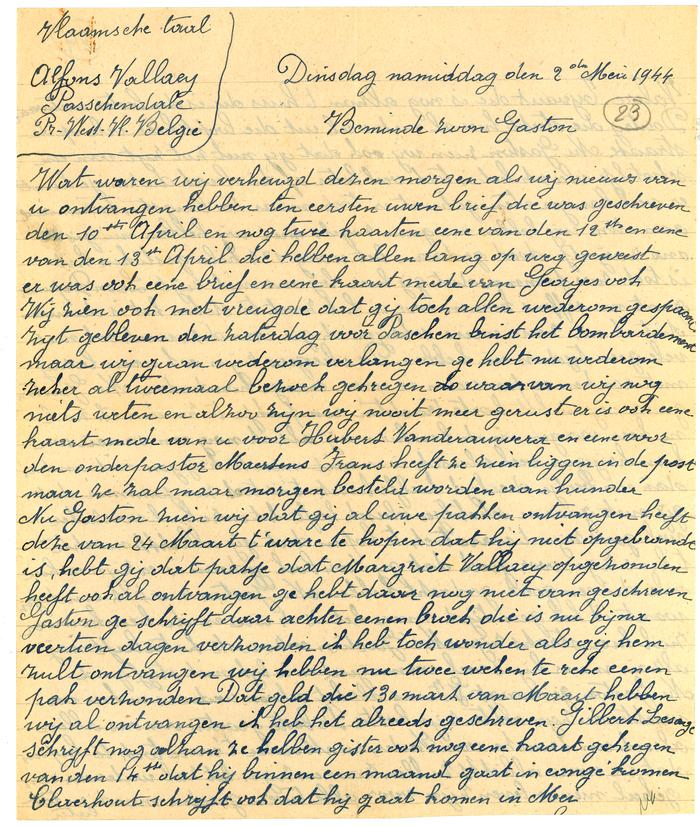 Vlaamsche taal
Alfons Vallaey
Passchendale
Pr-West-Vl. Belgie
Dinsdag namiddag den 2de Mei 1944
23
Beminde zoon Gaston
Wat waren wij verheugd dezen morgen als wij nieuws van
u ontvangen hebben ten eersten uwen brief die was geschreven
den 10ste April en nog twee kaarten eene van den 12th en eene
van den 13st April die hebben allen lang op weg geweest
er was ook eene brief en eene kaart mede van Georges ook
Wij zien ook met vreugde dat gij toch allen wederom gespaard
zijt gebleven den zaterdag voor Paschen binst het bombardement
maar wij gaan wederom verlangen ge hebt nu wederom
zeker al tweemaal bezoek gekregen do waarvan wij nog
niets weten en alzoo zijn wij nooit meer gerust er is ook eene
kaart mede van u voor Hubert Vanderauwera en eene voor
den onderpastor Maertens Frans heeft ze zien liggen in de post
maar ze zal maar morgen besteld worden aan hunder
Nu Gaston zien wij dat gij al uwe pakken ontvangen heeft
deze van 24 Maart t'ware te hopen dat hij niet opgebrande
is, hebt gij dat pakje dat Margriet Vallaey opgezonden
heeft ook al ontvangen ge hebt daar nog niet van geschreven
Gaston ge schrijft daar achter eenen broek die is nu bijna
veertien dagen verzonden ik heb toch wonder als gij hem
zult ontvangen wij hebben nu twee weken te reke eenen
pak verzonden Dat geld die 130 mark van Maart hebben
wij al ontvangen ik heb het alreeds geschreven. Gilbert Lesage
schrijft nog alhan ze hebben gister ook nog eene kaart gekregen
van den 14st dat hij binnen een maand gaat in congé komen
Claerhout schrijft ook dat hij gaat komen in Mei